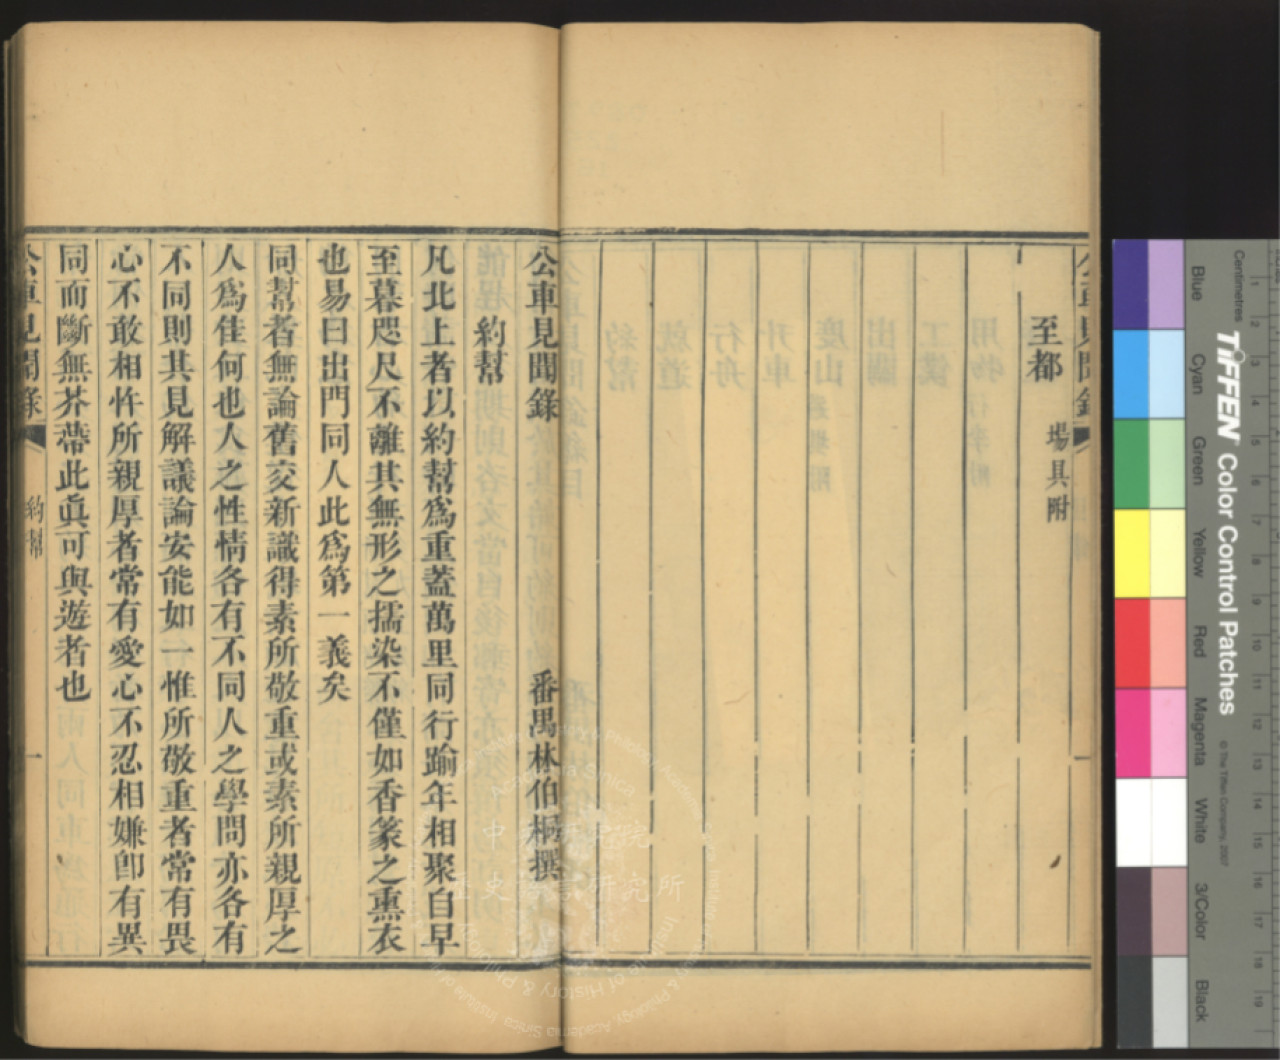 至都
場具附
公車見聞錄
番禺林伯桐撰
約幫
凡北上者以約幫爲重蓋萬里同行踰年相聚自早
至暮咫尺不離其無形之擩染不僅如香篆之熏衣
也易曰出門同人此爲第一義矣
同幫者無論舊交新識得素所敬重或素所親厚之
人爲佳何也人之性情各有不同人之學問亦各有
不同則其見解議論安能如一惟所敬重者常有畏
心不敢相忤所親厚者常有愛心不忍相嫌卽有異
同而斷無芥蔕此眞可與遊者也
公車見聞錄
約幫
一
Centimetres
TIFFEN Color Control Patches
© The Tiffen Company, 2007
Blue
Cyan
Green
Yellow
Red
Magenta
White
3/Color
Black